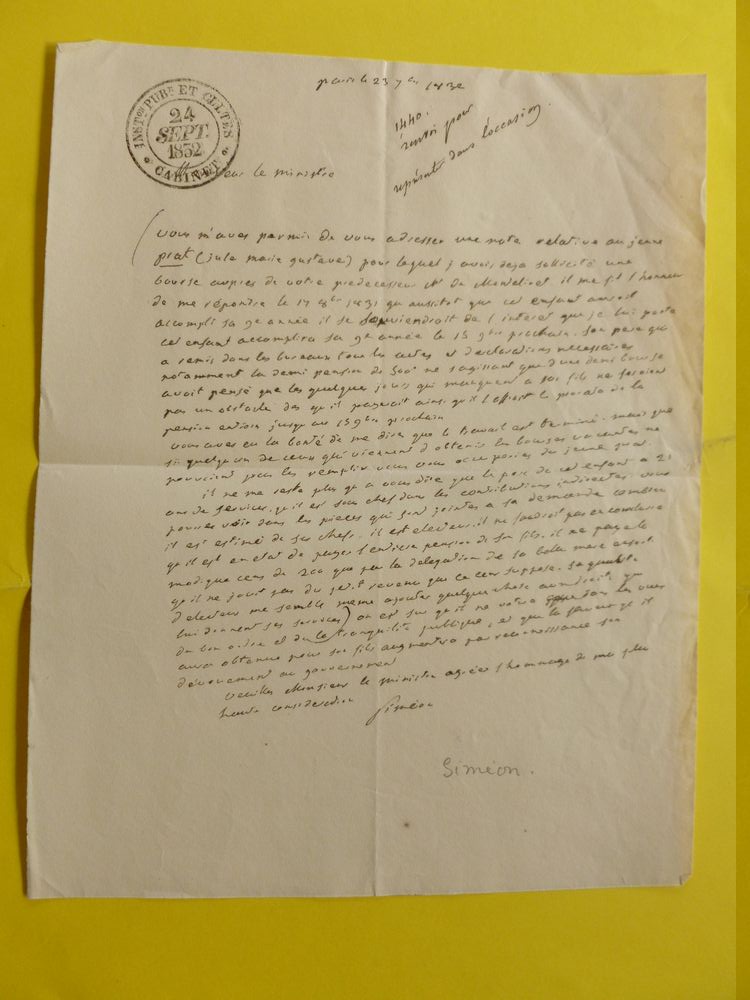 paris le 23 7bre 1832
INSTon PUBe ET CULTES
24
SEPT.
1832
CABINET
1440.
renvoi pour
représenter dans l'occasion.
Monsieur le ministre
vous m'aves permis de vous adresser une note relative au jeune
prat (jule marie gustave) pour lequel j'avois deja sollicité une
bourse aupres de votre predecesseur Mr de Montalivet il me fit l'honneur
de me répondre le 17 8bre 1831 qu aussitot que cet enfant auroit
accompli sa 9e année il se souviendroit de l'interet que je lui porte
cet enfant accomplira sa 9e année le 15 9bre prochain. son pere qui
a remis dans les bureaux tous les actes et declarations nécessaires
notamment la demi pension de 500f ne s'agissant que d'une demi bourse
avoit pensé que les quelques jours qui manquent a son fils ne seroient
pas un obstacle des qu'il payeroit ainsi qu'il l'offroit le prorata de la
pension entiere jusqu au 15 9bre prochain
vous aves eu la bonté de me dire que le travail est terminé. mais que
si quelqu'un de ceux qui viennent d'obtenir les bourses vacantes ne
pouvoient pas les remplir vous vous occuperies du jeune prat.
il ne me reste plus qu a vous dire que le pere de cet enfant a 21
ans de services, qu'il est sous chef dans les contributions indirectes. vous
pourres voir dans les pieces qui sont jointes a sa demande combien
il est estimé de ses chefs. il est electeur. il ne faudroit pas en conclure
qu'il est en état de payer l'entiere pension de son fils. il ne paye le
modique cens de 200 que par la delegation de sa belle mere ensorte
qu'il ne jouit pas du petit revenu que ce cens suppose. sa qualité
d'electeur me semble meme ajouter quelque chose aux droits que
lui donnent ses services) on est sur qu'il ne votera que dans les vues
du bon ordre et de la tranquilité publique, et que la faveur qu'il
aura obtenue pour son fils augmentera par reconnoissance son
dévouement au gouvernement
veuilles Monsieur le ministre agréer l'hommage de ma plus
haute considération
Siméon
Siméon.